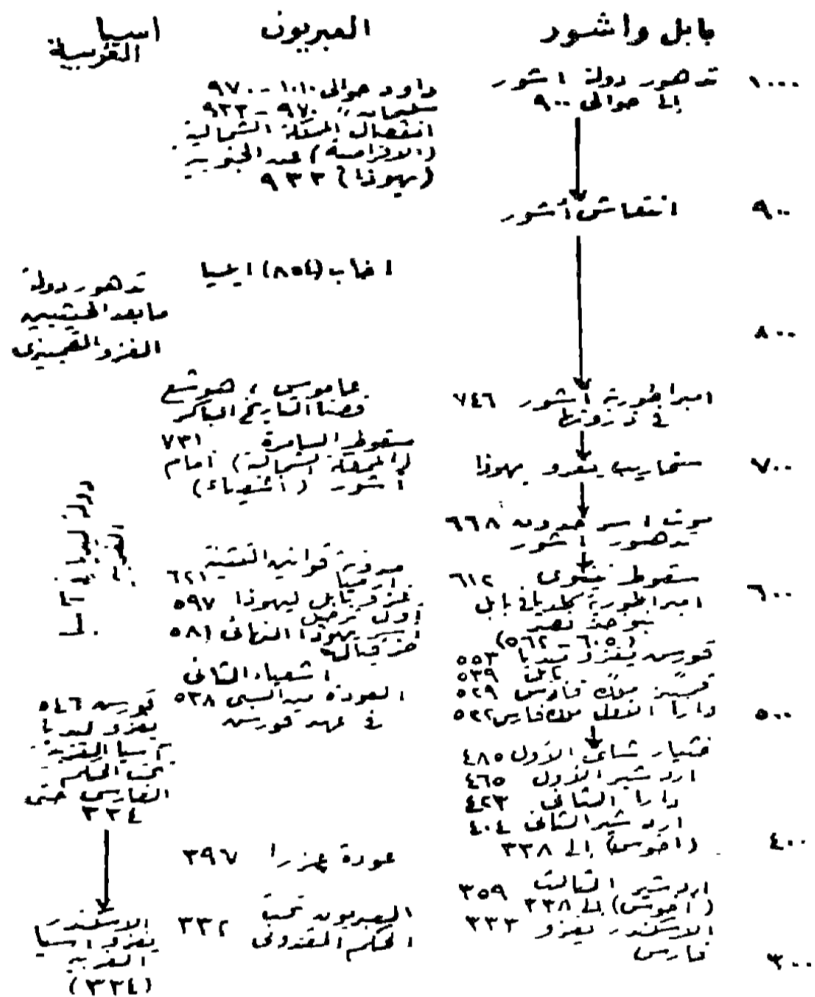 بابل واشور
١٠٠٠
تدهور دولة اشور
إلى حوالى ٩٠٠
٩٠٠
انتعاش أشور
٨٠٠
امبراطورية اشور ٧٤٦
فى ذروتها
٧٠٠
سنحاريب يغزو يهوذا
موت اسرحدون ٦٦٨
تدهور اشور
سقوط نينوى ٦١٢
٦٠٠
امبراطورية كلديا فى بابل
نبوخذ نصر
(٦٠٥ - ٥٦٢)
قورس يغزو ميديا ٥٥٣
بابل ٥٣٩
قمبيز ملك فارس ٥٢٩
دارا الاول ملك فارس ٥٢٢
٥٠٠
شاى الأول ٤٨٥
اردشير الأول ٤٦٥
دارا الثانى ٤٢٣
اردشير الثانى ٤٠٤
(اخوس) إلى ٣٣٨
٤٠٠
اردشير الثالث ٣٥٩
(اخوس) إلى ٣٣٨
الاسكندر يغزو ٣٣٣
فارس
٣٠٠
العبريون
داود حوالى ١٠١٠ - ٩٧٠
سليمان " ٩٧٠ - ٩٣٣
انفصال المملكة الشمالية
(الافرامية) عن الجنوبية
(يهوذا) ٩٣٣
اخاب (٨٥٤) ايليا
عاموس، هوشع
وصنا التاريخ الباكر
سقوط السامرة ٧٣١
(المملكة الشمالية) أمام
أشور (أشعياء)
مدونة قوانين التثنية ٦٢١
ارميا
غزو بابل ليهوذا ٥٩٧
أول ترحيل
يهوذا النهائى (٥٨
حزقيال
اشعياء الثانى
العودة من السبى ٥٣٨
فى عهد قورس
عودة عزرا ٣٩٧
العبريون تحت ٣٣٢
الحكم المقدونى
اسيا
الغربية
تدهور دولة
مابعد الحيثيين
الغزو
دولة ليديا فى آسيا
الغربية
قورس ٥٤٦
يغزو ليديا
آسيا الغربية
تحت الحكم
الفارسى حتى
٣٣٤
الاسكندر
يغزو اسيا
الغربية
(٣٣٤)